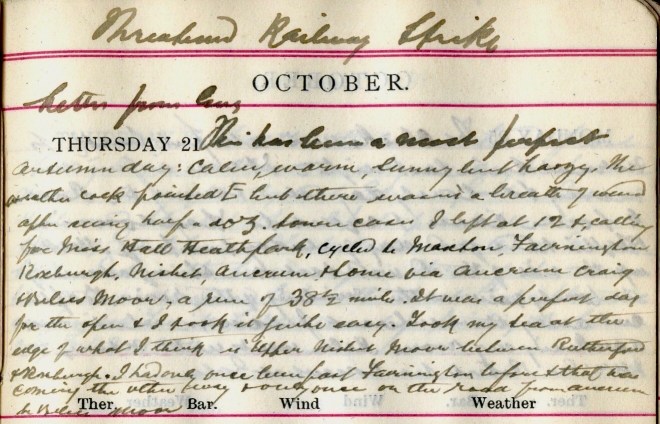 Threatened Railway Strike
OCTOBER.
Letter from
THURSDAY 21 This has been a most perfect
autumn day: calm, warm, sunny but hazy. The
weather cock pointed E but there was a breath of wind
after seeing half a doz. town cases I left at 12 &, calling
for Miss Hall Heathpark, cycled to Maxton, Fairnington
Roxburgh, Nisbet, Ancrum & home via Ancrum Craig
& Belses Moor, a run of 38½ miles. It was a perfect day
for the open & I took it quite easy. Took my tea at the
edge of what I think is Upper Nisbet Moor between Rutherford
& Roxburgh. I had only once been past Fairnington before & that was
coming the other way & only once on the road from Ancrum
to Belses Moor
Ther. Bar. Wind Weather